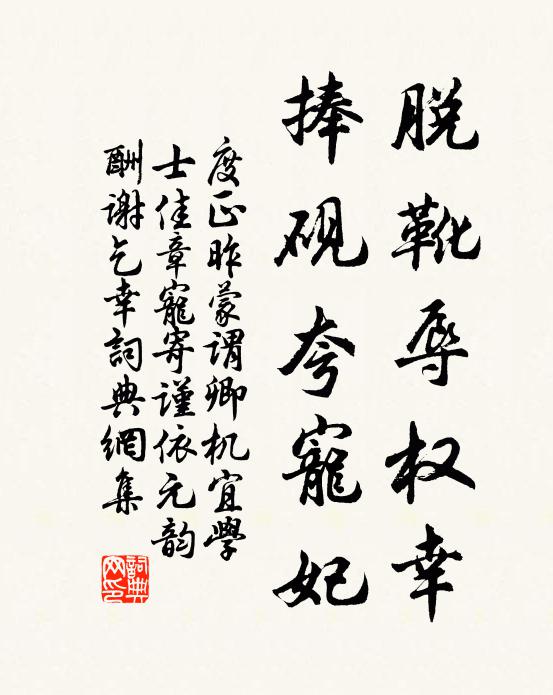 脱靴辱权幸
捧砚夸宠妃
度正昨蒙谓卿机宜學
士佳章寵寄谨依元韵
酬谢乞幸詞典網集
詞典网印